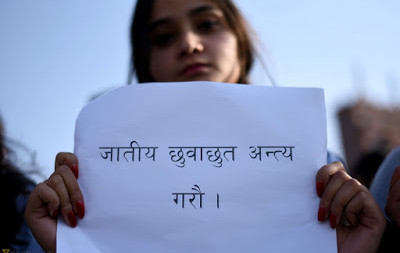 जातीय छुवाछुत अन्त्य
गरौ ।